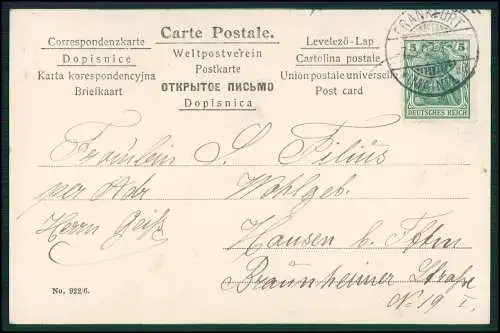 Carte Postale.
Correspondenzkarte
Dopisnice
Karta korespondencyjna
Briefkaart
Weltpostverein
Postkarte
ОТКРЫТОЕ ПИСЬМО
Dopisnica
Levelező-Lap
Cartolina postale
Union postale universelle
Post card
FRANKFURT
5 5
DEUTSCHES REICH
Fräulein S. Filius
per Adr Wohlgeb.
Herrn Geiß
Hausen b. Ffm
Braunheimer Straße
No 19 I.
No. 922/6.